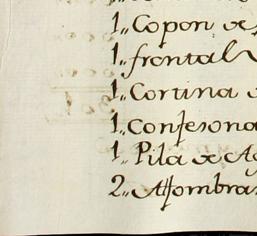 1,, Copon de
1,, frontal
1,, Cortina
1,, Confesona
1,, Pila de Ag
2,, Alfombras